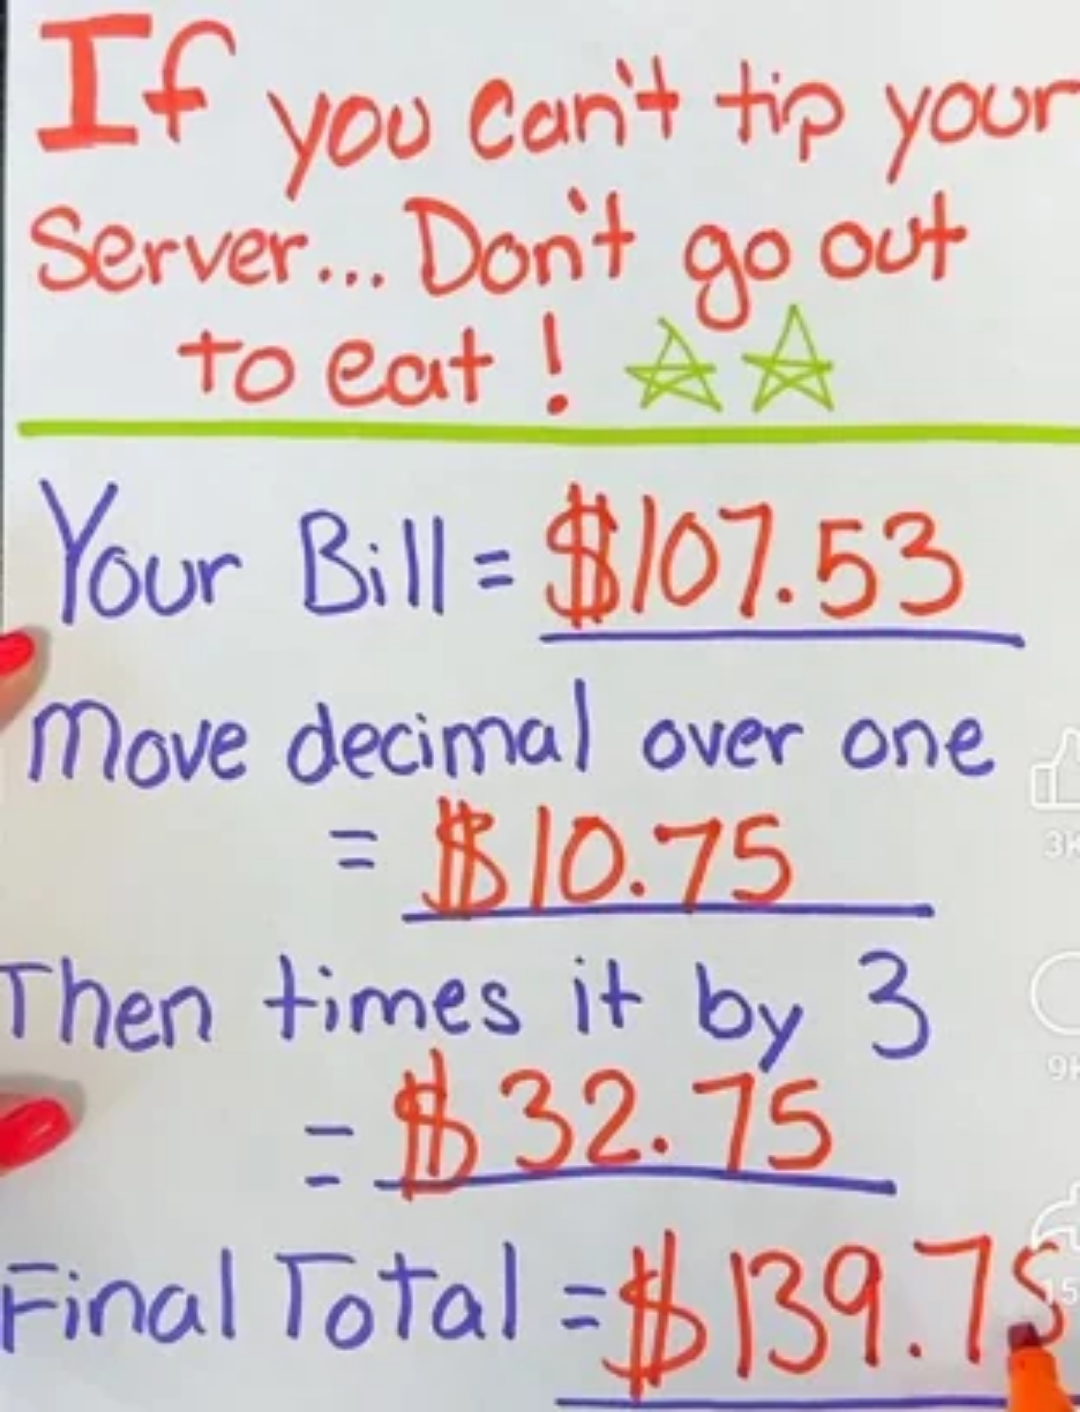 If you can't tip your
Server... Don't go out
to eat!
Your Bill = $107.53
Move decimal over one
= $10.75
Then times it by 3
= $32.75
Final Total = $139.75
3K
9K
15